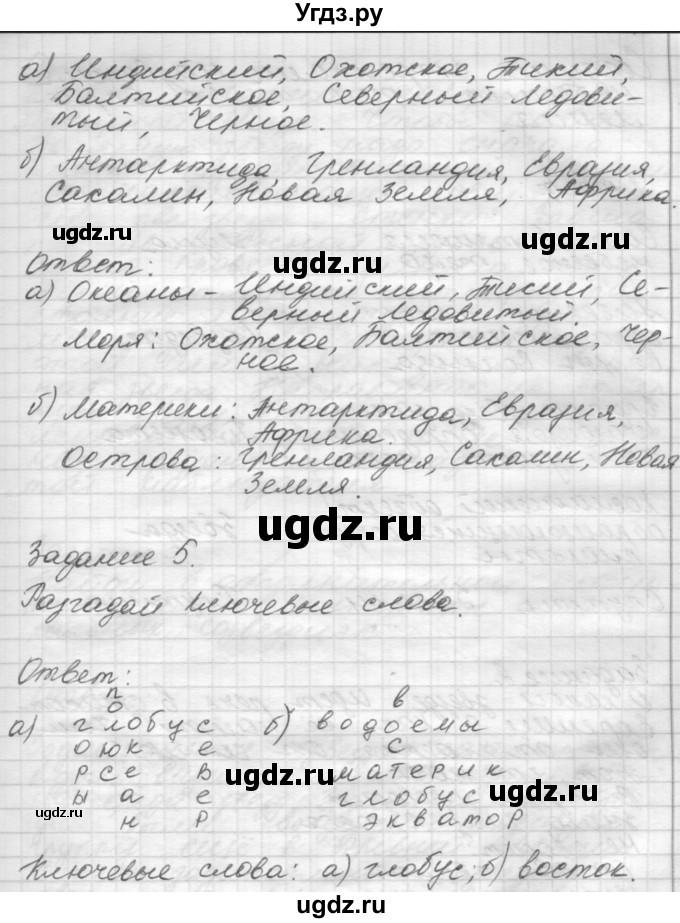 Угдз.ру
а) Индийский, Охотское, Тихий,
Балтийское, Северный Ледови-
тый, Черное.
б) Антарктида, Гренландия, Евразия,
Сахалин, Новая Земля, Африка.
ugdz.ru
ugdz.ru
Ответ:
а) Океаны - Индийский, Тихий, Се-
верный Ледовитый.
Моря: Охотское, Балтийское, Чер-
ное.
б) Материки: Антарктида, Евразия,
Африка.
Острова: Гренландия, Сахалин, Новая
Земля.
ugdz.ru
Задание 5.
Разгадай ключевые слова.
Ответ:
п в
о
а) глобус б) водоемы
оюк е с
рсе в материк
ugdz.ru
ы а е глобус
ugdz.ru
ugdz.ru
н р экватор
Ключевые слова: а) глобус; б) восток.
ugdz.ru
ugdz.ru